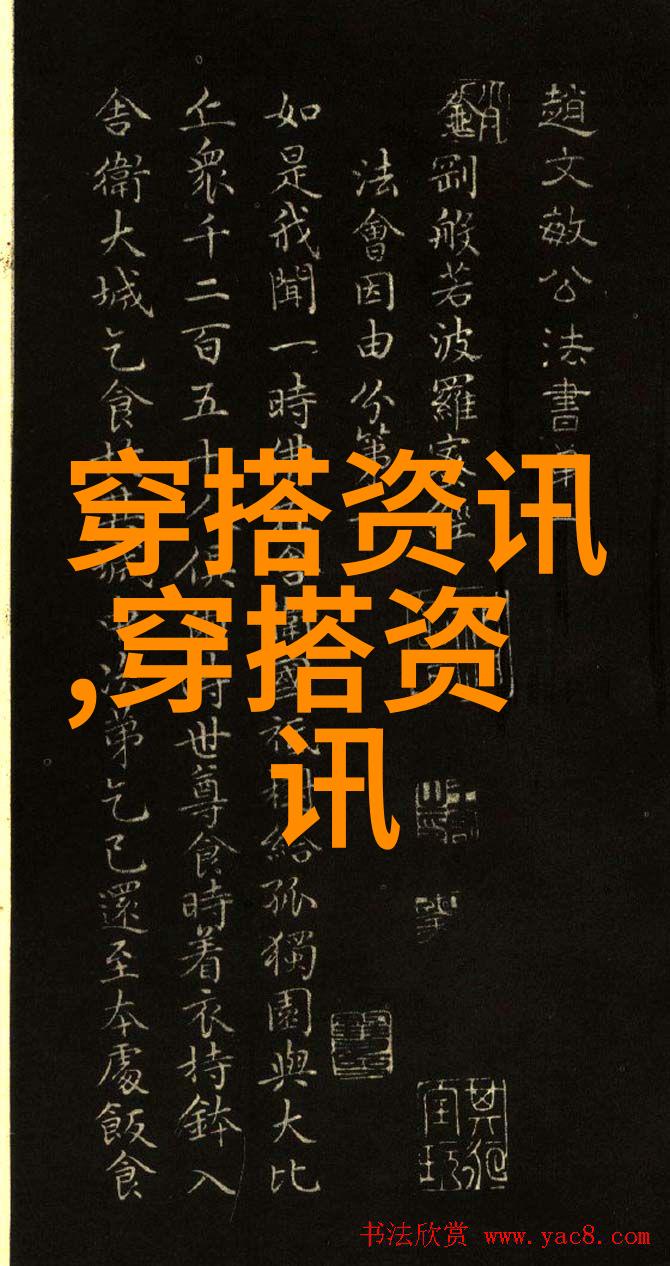 趙文敏公法書第一
金剛般若波羅蜜經
法會因由分第一
如是我聞一時佛在舍衛國祇樹給孤獨園與大比
丘衆千二百五十人俱爾時世尊食時着衣持鉢入
舍衛大城乞食於其城中次第乞已還至本處飯食
穿搭资讯
,穿搭资
讯
书法欣赏 www.yac8.com